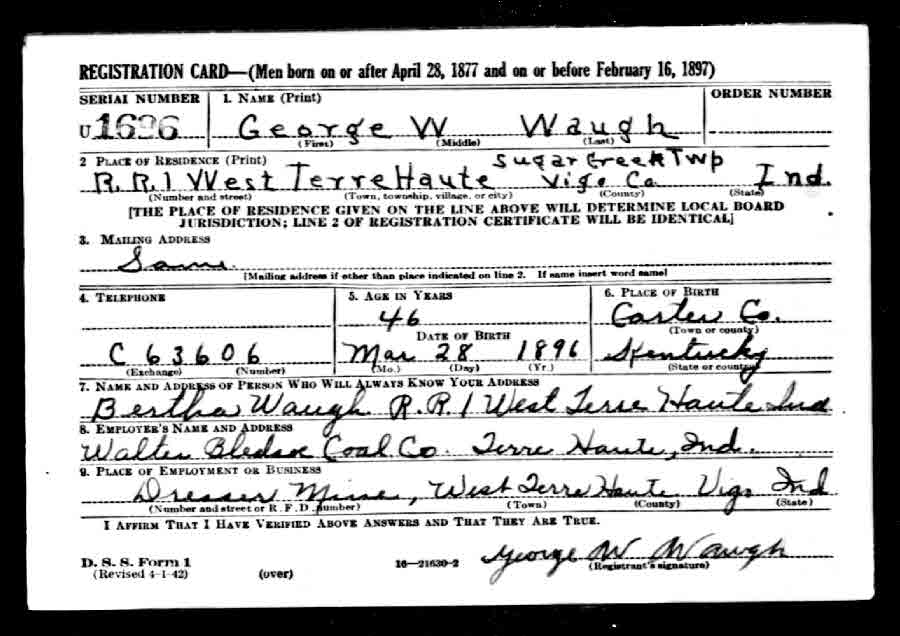 REGISTRATION CARD—(Men born on or after April 28, 1877 and on or before February 16, 1897)
SERIAL NUMBER 1. NAME (Print) ORDER NUMBER
U 1696 George W Waugh
(First) (Middle) (Last)
2 PLACE OF RESIDENCE (Print) Sugar Creek Twp
R.R. 1 West Terre Haute Vigo Co. Ind.
(Number and street) (Town, township, village, or city) (County) (State)
[THE PLACE OF RESIDENCE GIVEN ON THE LINE ABOVE WILL DETERMINE LOCAL BOARD
JURISDICTION; LINE 2 OF REGISTRATION CERTIFICATE WILL BE IDENTICAL]
3. MAILING ADDRESS
Same.
[Mailing address if other than place indicated on line 2. If same insert word same]
4. TELEPHONE 5. AGE IN YEARS 6. PLACE OF BIRTH
46 Carter Co.
DATE OF BIRTH (Town or county)
C 63606 Mar 28 1896 Kentucky
(Exchange) (Number) (Mo.) (Day) (Yr.) (State or country)
7. NAME AND ADDRESS OF PERSON WHO WILL ALWAYS KNOW YOUR ADDRESS
Bertha Waugh R.R. 1 West Terre Haute Ind
8. EMPLOYER'S NAME AND ADDRESS
Walter Bledsoe Coal Co. Terre Haute, Ind.
9. PLACE OF EMPLOYMENT OR BUSINESS
Dresser Mine, West Terre Haute Vigo Ind
(Number and street or R. F. D. number) (Town) (County) (State)
I AFFIRM THAT I HAVE VERIFIED ABOVE ANSWERS AND THAT THEY ARE TRUE.
George W Waugh
D. S. S. Form 1 16—21630-2 (Registrant's signature)
(Revised 4-1-42) (over)